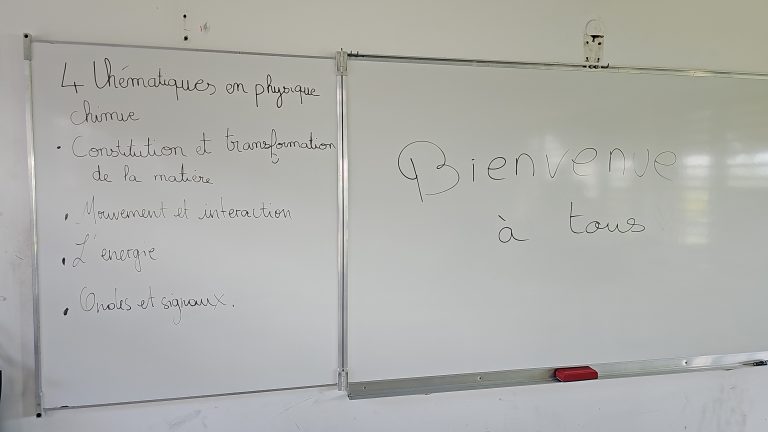 4 thématiques en physique
chimie
• Constitution et transformation
de la matière
• Mouvement et interaction
• L'énergie
• Ondes et signaux.
Bienvenue
à tous